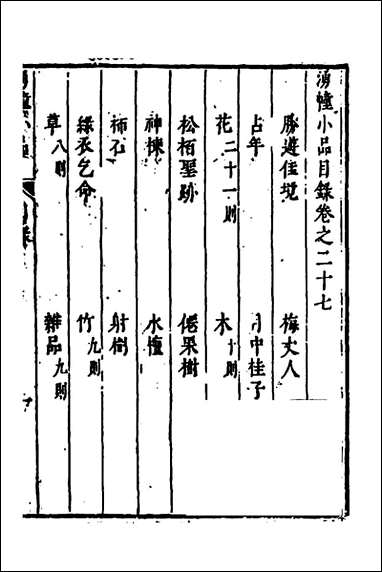 湧幢小品目錄卷之二十七
勝遊佳境　梅丈人
占年　月中桂子
花二十一則　木十則
松栢聖跡　僊果樹
神楝　水檀
柿石　射樹
綠衣乞命　竹九則
草八則　雜品九則